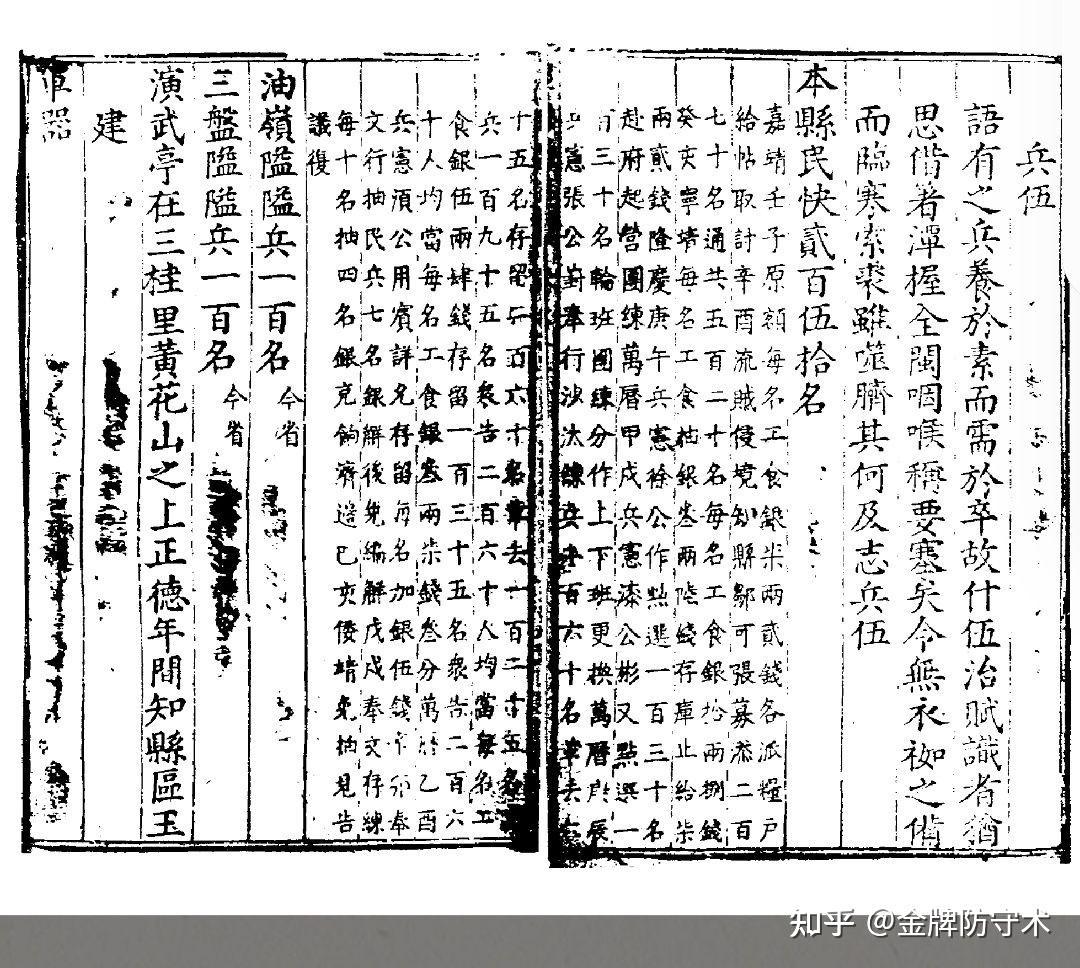 兵伍
語有之兵養於素而需於卒故什伍治賦識者猶
思偹著潭握全閩咽喉稱要塞矣今無衣袽之偹
而臨寒索裘雖噬臍其何及志兵伍
本縣民快貳百伍拾名
嘉靖壬子原額每名工食銀米兩貳錢各派糧戶
給帖取討辛酉流賊侵境知縣鄒可張募添二百
七十名通共五百二十名每名工食銀拾兩捌錢
癸亥寧靖每名工食抽銀叁兩陸錢存庫止給柒
兩貳錢隆慶庚午兵憲徐公作點選一百三十名
赴府起營團練萬曆甲戌兵憲漆公彬又點選一
百三十名輪班團練分作上下班更換萬曆庚辰
兵憲張公 奉行沙汰練兵 百六十名革去
十五名存留二百六十名革去一百二十五名工
兵一百九十五名衆告二百六十人均當每名工
食銀伍兩肆錢存留一百三十五名衆告二百六
十人均當每名工食銀叁兩柒錢叁分萬曆乙酉
兵憲湏公用賓詳允存留每名加銀伍錢 奉
文行抽民兵七名銀解後免編解戊戌奉文存練
每十名抽四名銀充餉濟造己亥倭靖免抽見告
議復
油嶺隘隘兵一百名今省
三盤隘隘兵一百名今省
演武亭在三桂里黃花山之上正德年間知縣區玉
建
軍器
知乎 @金牌防守术